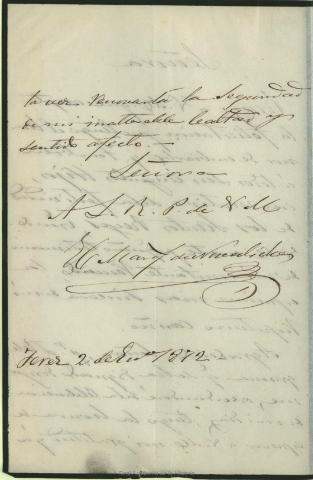 ta vez renovará la seguridad
de mi inalterable lealtad y
sentido afecto.—
Señora
A. L. R. P. de V. M.
El Marq
Jerez 2 de En.º 1872